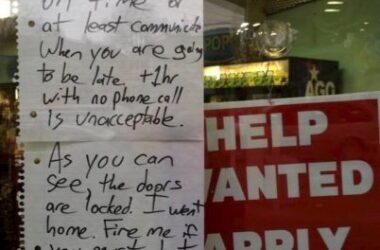 on time or
at least communicate
when you are going
to be late. +1hr
with no phone call
is unacceptable.
As you can
see, the doors
are locked. I went
home. Fire me if
you
POP
AGO
HELP
WANTED
APPLY